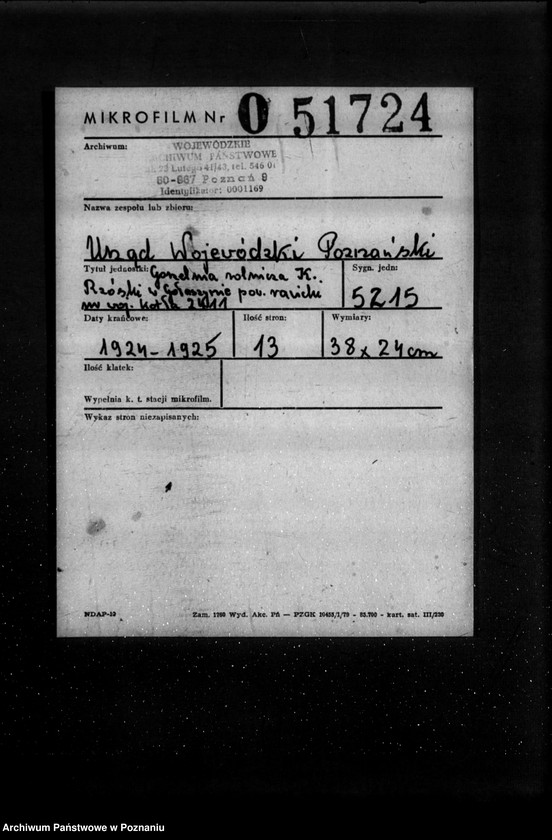 MIKROFILM Nr 0 51724
Archiwum:
WOJEWÓDZKIE
ARCHIWUM PAŃSTWOWE
23 Lutego 41/43, tel. 546 01
60-967 Poznań 9
Identyfikator: 0001169
Nazwa zespołu lub zbioru:
Urząd Wojewódzki Poznański
Tytuł jednostki: Gorzelnia rolnicza K.
Rzóski w Górczynie pow. rawicki
nr rej. kotła 2411
Sygn. jedn:
5215
Daty krańcowe:
1924-1925
Ilość stron:
13
Wymiary:
38 x 24 cm
Ilość klatek:
Wypełnia k. t. stacji mikrofilm.
Wykaz stron niezapisanych:
NDAP-10
Zam. 1760 Wyd. Akc. Pń — PZGK
kart. sat. III/230
Archiwum Państwowe w Poznaniu